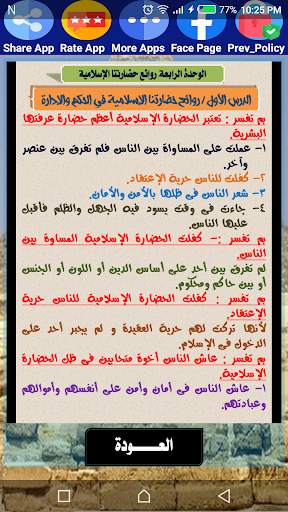 77% 10:25 PM
Share App Rate App More Apps Face Page Prev_Policy
الوحدة الرابعة روائع حضارتنا الإسلامية
الدرس الأول / روائع حضارتنا الاسلامية في الحكم والادارة
بم تفسر : تعتبر الحضارة الإسلامية أعظم حضارة عرفتها
البشرية.
١- عملت على المساواة بين الناس فلم تفرق بين عنصر
وآخر.
٢- كفلت للناس حرية الإعتقاد.
٣- شعر الناس في ظلها بالأمن والأمان.
٤- جاءت في وقت يسود فيه الجهل والظلم فأقبل
عليها الناس.
بم تفسر :- كفلت الحضارة الإسلامية المساوة بين
الناس.
لم تفرق بين أحد على أساس الدين أو اللون أو الجنس
أو بين حاكم ومحكوم.
بم تفسر : كفلت الحضارة الإسلامية للناس حرية
الإعتقاد.
لأنها تركت لهم حرية العقيدة و لم يجبر أحد على
الدخول في الإسلام.
بم تفسر : عاش الناس أخوة متحابين في ظل الحضارة
الإسلامية.
١- عاش الناس في أمان وأمن على أنفسهم وأموالهم
وعبادتهم.
العـــودة